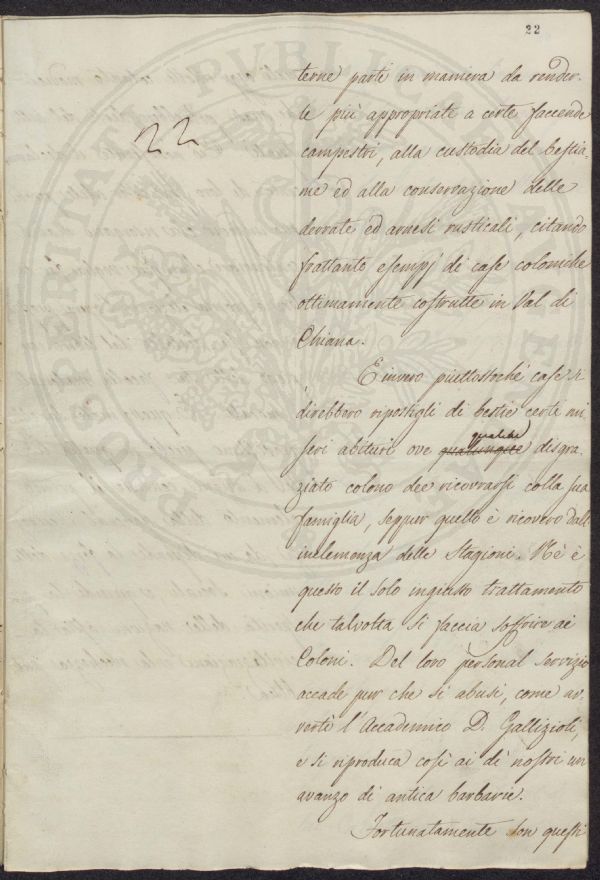 22
22
terne parti in maniera da render-
le più appropriate a certe faccende
campestri, alla custodia del bestia-
me ed alla conservazione delle
derrate ed arnesi rusticali, citando
frattanto esempj di case coloniche
ottimamente costrutte in Val di
Chiana.
E invero piuttostochè case si
direbbero ripostigli di bestie certi mi
seri abituri ove qualunque qualche disgra-
ziato colono dee ricovrarsi colla sua
famiglia, seppur quello è ricovero dall'
inclemenza delle Stagioni. Nè è
questo il solo ingiusto trattamento
che talvolta si faccia soffrire ai
Coloni. Del loro personal servizio
accade pur che si abusi, come av-
vertì l'Accademico D. Gallizioli,
e si riproduca così ai dì nostri un
avanzo di antica barbarie.
Fortunatamente son questi